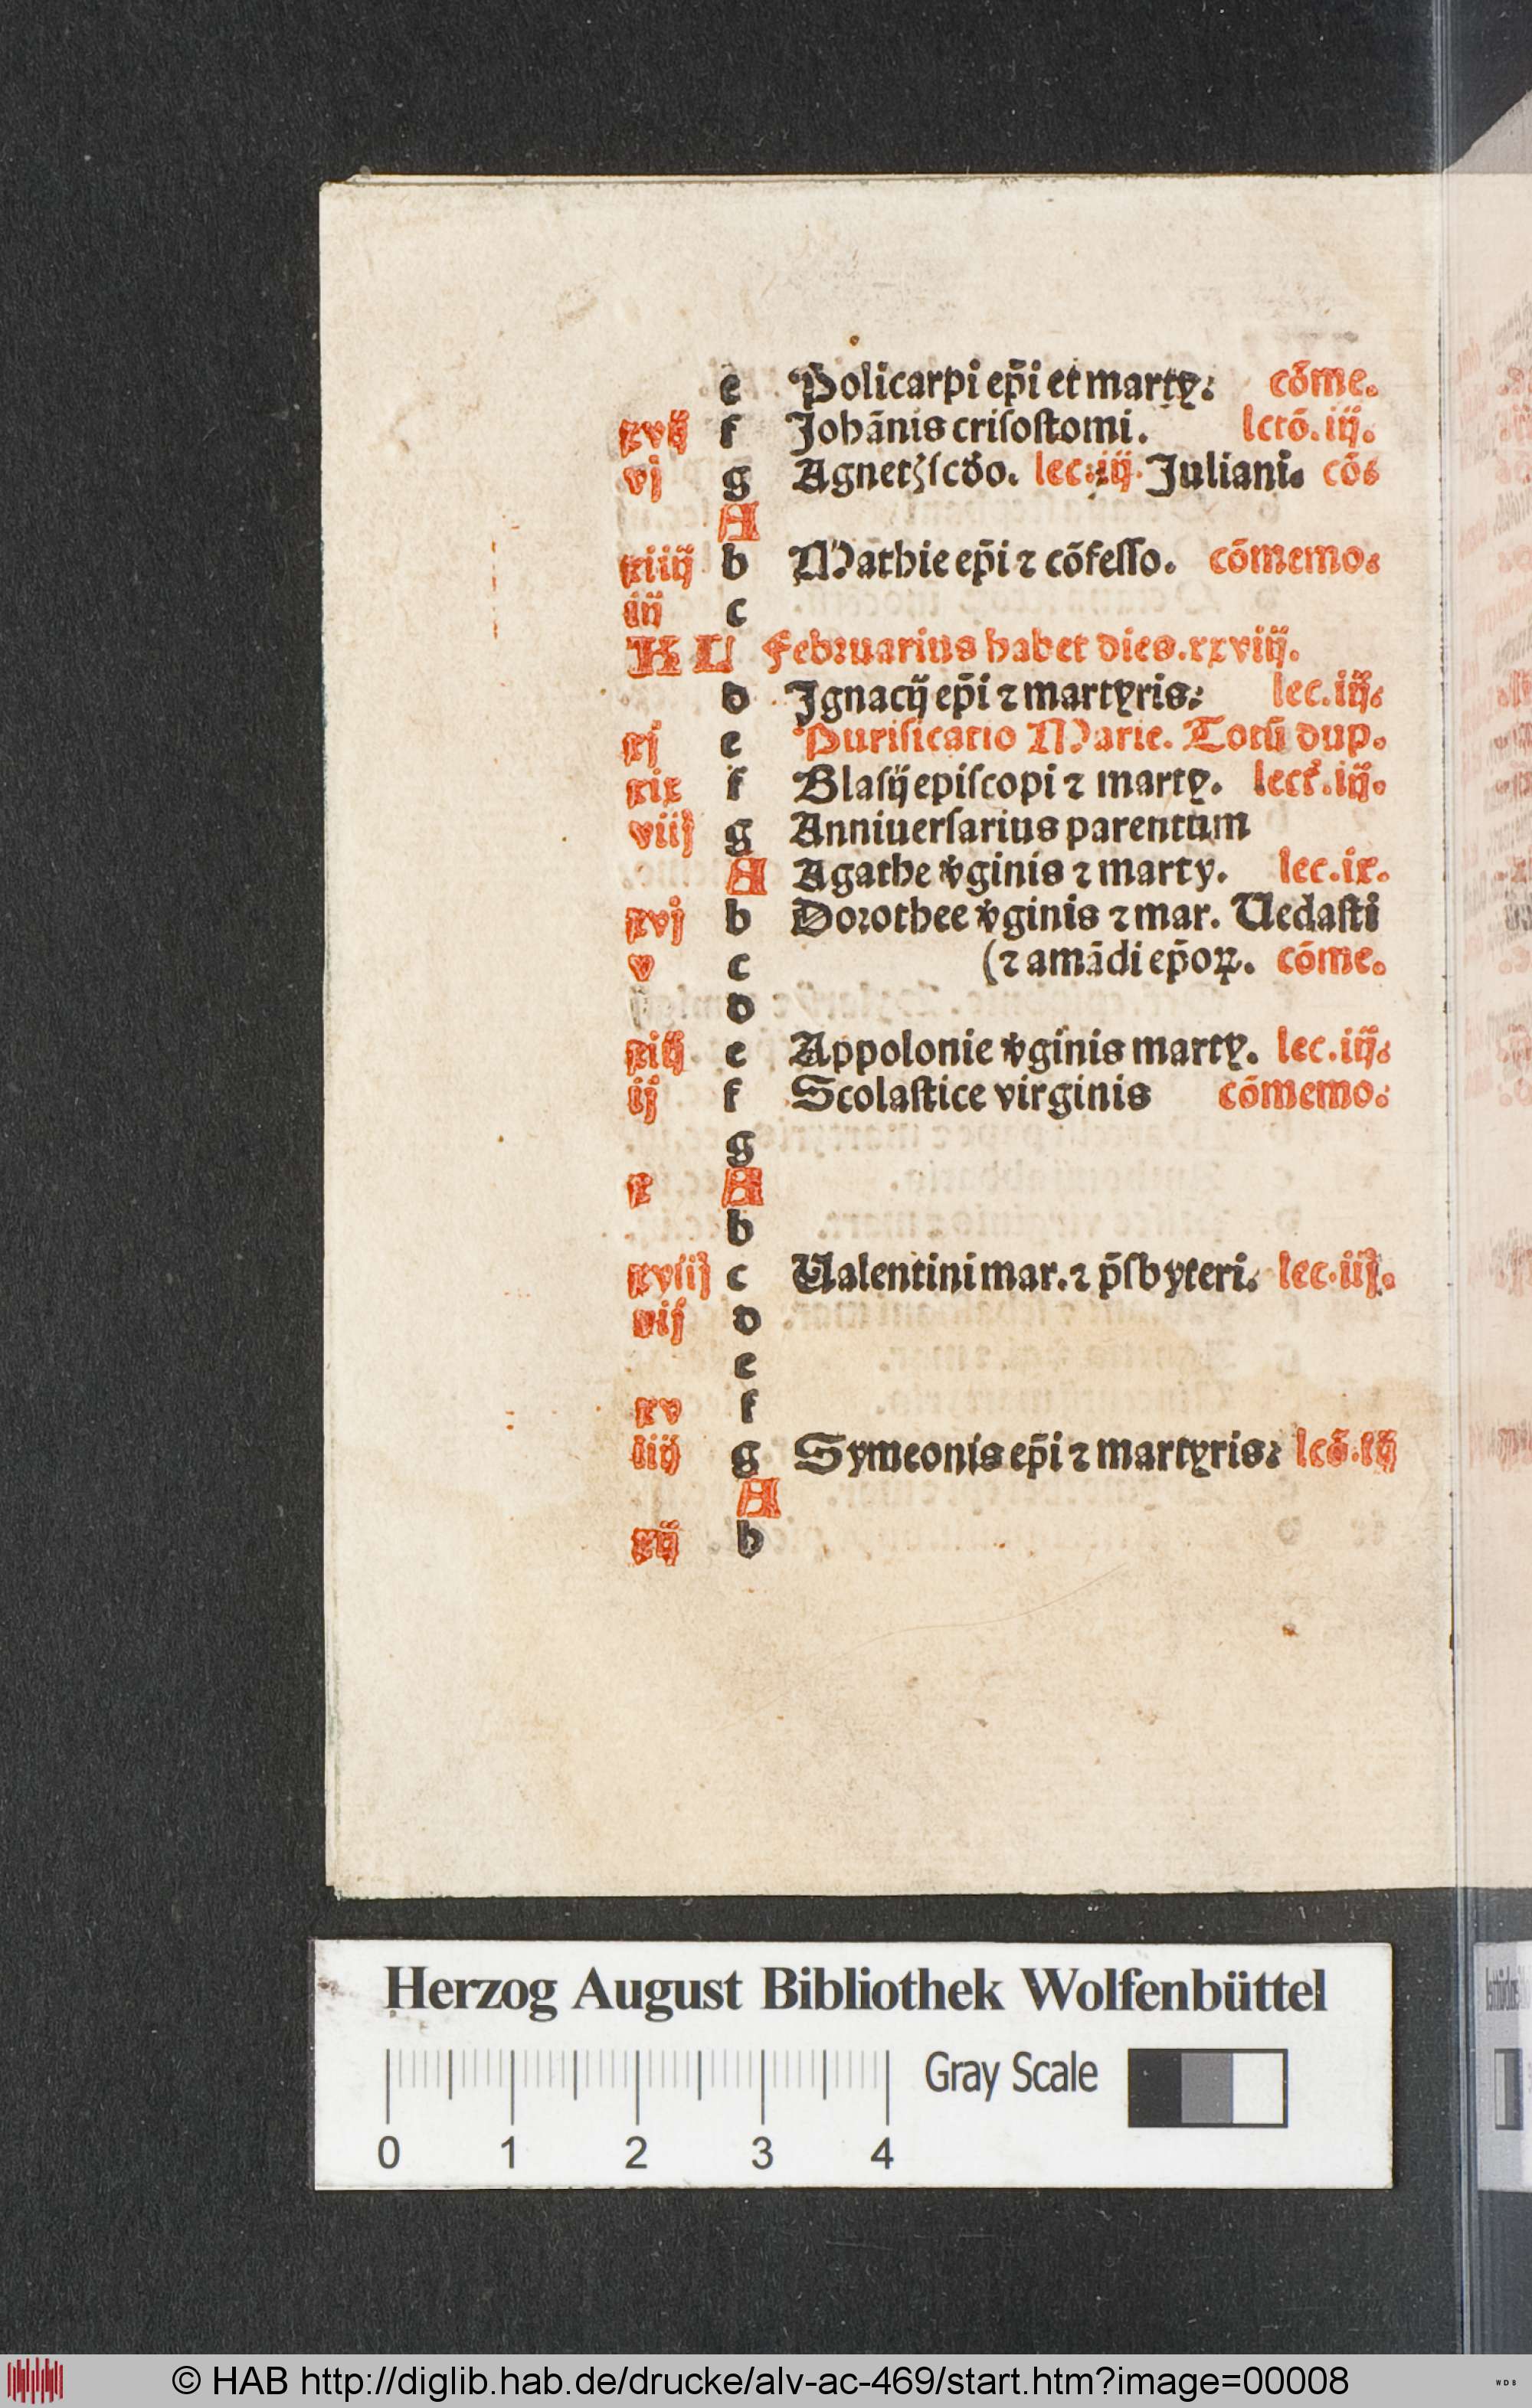 e Policarpi ep̄i et marty: cōme.
xvij f Johānis criſoſtomi. lctō.iij.
vj g Agnetꝭ ſcd̄o. lec.iij. Juliani. cō.
A
xiiij b Mathie ep̄i ⁊ cōfeſſo. cōmemo.
iij c
KL Februarius habet dies.xxviij.
d Ignacij ep̄i ⁊ martyris: lec.iij.
xj e Purificatio Marie. Totū dup.
xix f Blaſij epiſcopi ⁊ marty. lect̄.iij.
viij g Anniuerſarius parentum
A Agathe v̓ginis ⁊ marty. lec.ix.
xvj b Dorothee v̓ginis ⁊ mar. Uedaſti
v c (⁊ amādi ep̄oꝝ. cōme.
d
xiij e Appolonie v̓ginis marty. lec.iij.
ij f Scolaſtice virginis cōmemo.
g
x A
b
xviij c Ualentini mar. ⁊ p̄ſbyteri. lec.iij.
vij d
e
xv f
iiij g Symeonis ep̄i ⁊ martyris: lcō.iij
A
xij b
Herzog August Bibliothek Wolfenbüttel
Gray Scale
0 1 2 3 4
© HAB http://diglib.hab.de/drucke/alv-ac-469/start.htm?image=00008